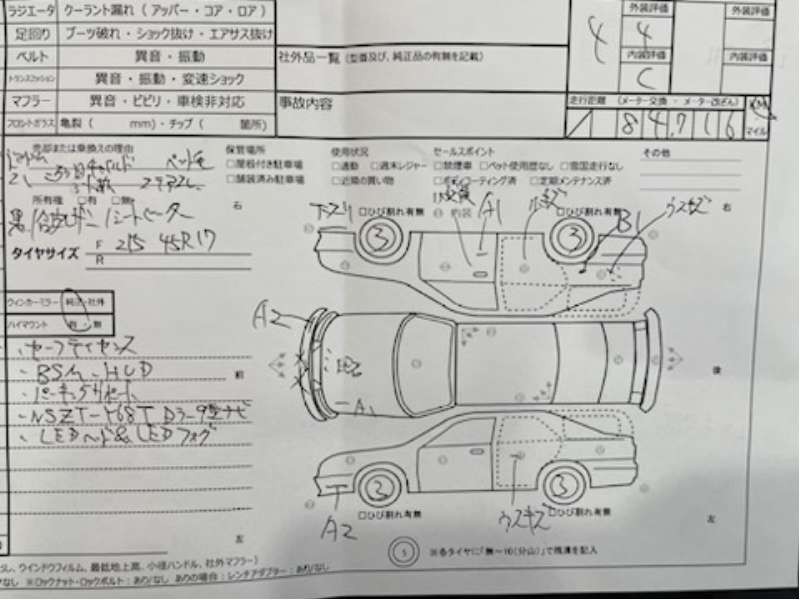 ラジエータ クーラント漏れ（ アッパー・コア・ロア ）
足回り ブーツ破れ・ショック抜け・エアサス抜け
ベルト 異音・振動
トランスミッション 異音・振動・変速ショック
マフラー 異音・ビビリ・車検非対応
フロントガラス 亀裂（ mm）・チップ（ 箇所）
社外品一覧（型番及び、純正品の有無を記載）
事故内容
外装評価 外装評価
4 4
内装評価 内装評価
C
走行距離 （メーター交換 ・ メーター改ざん）
84,716
マイル
売却または乗換えの理由
所有権 □有 □無
黒 合皮レザー シートヒーター
タイヤサイズ F 215 45R17
R
保管場所
□屋根付き駐車場
□舗装済み駐車場
使用状況
□通勤 □週末レジャー
□近隣の買い物
セールスポイント
□禁煙車 □ペット使用歴なし □雪国走行なし
□ボディコーティング済 □定期メンテナンス済
その他
ウィンカーミラー 純正・社外
ハイマウント 有・無
・セーフティセンス
・BSM・HUD
・パーキングサポート
・NSZT-Y68T Dラー9型ナビ
・LEDヘッド&LEDフォグ
右 右
下スリ □ひび割れ有無 A1 小キズ □ひび割れ有無 B1 ウスキズ
3 3
A2
前 後
A1
3 3
A2 □ひび割れ有無 ウスキズ □ひび割れ有無
左 左
※各タイヤに「無～10(分山)」で残溝を記入
ウインドウフィルム、最低地上高、小径ハンドル、社外マフラー）
※ロックナット・ロックボルト：あり/なし ありの場合：レンチアダプター：あり/なし